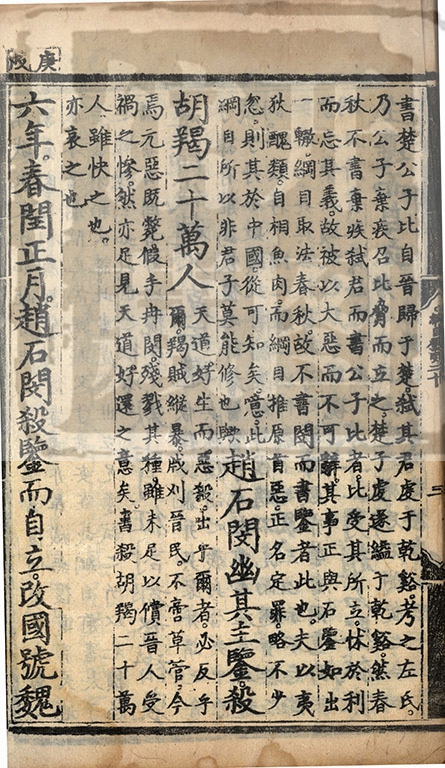 書楚公子比自晉歸于楚弑其君虔于乾谿考之左氏
乃公子棄疾召比脅而立之楚子虔遂縊于乾谿然春
秋不書棄疾弑君而書公子比者比受其所立怵於利
而忘其義故被以大惡而不可辭其事正與石鑒如出
一轍綱目取法春秋故不書閔而書鑒者此也夫以夷
狄醜類自相魚肉而綱目推原首惡正名定罪略不少
忽則其於中國從可知矣噫此
綱目所以非君子莫能修也歟
趙石閔幽其主鑒殺
胡羯二十萬人
天道好生而惡殺出乎爾者必反乎
爾羯賊縱暴戕刈晉民不啻草菅今
焉元惡既斃假手冉閔殘戮其種雖未足以償晉人受
禍之慘然亦足見天道好還之意矣書殺胡羯二十萬
人雖快之也
亦哀之也
庚戌
六年春閏正月趙石閔殺鑒而自立改國號魏
二